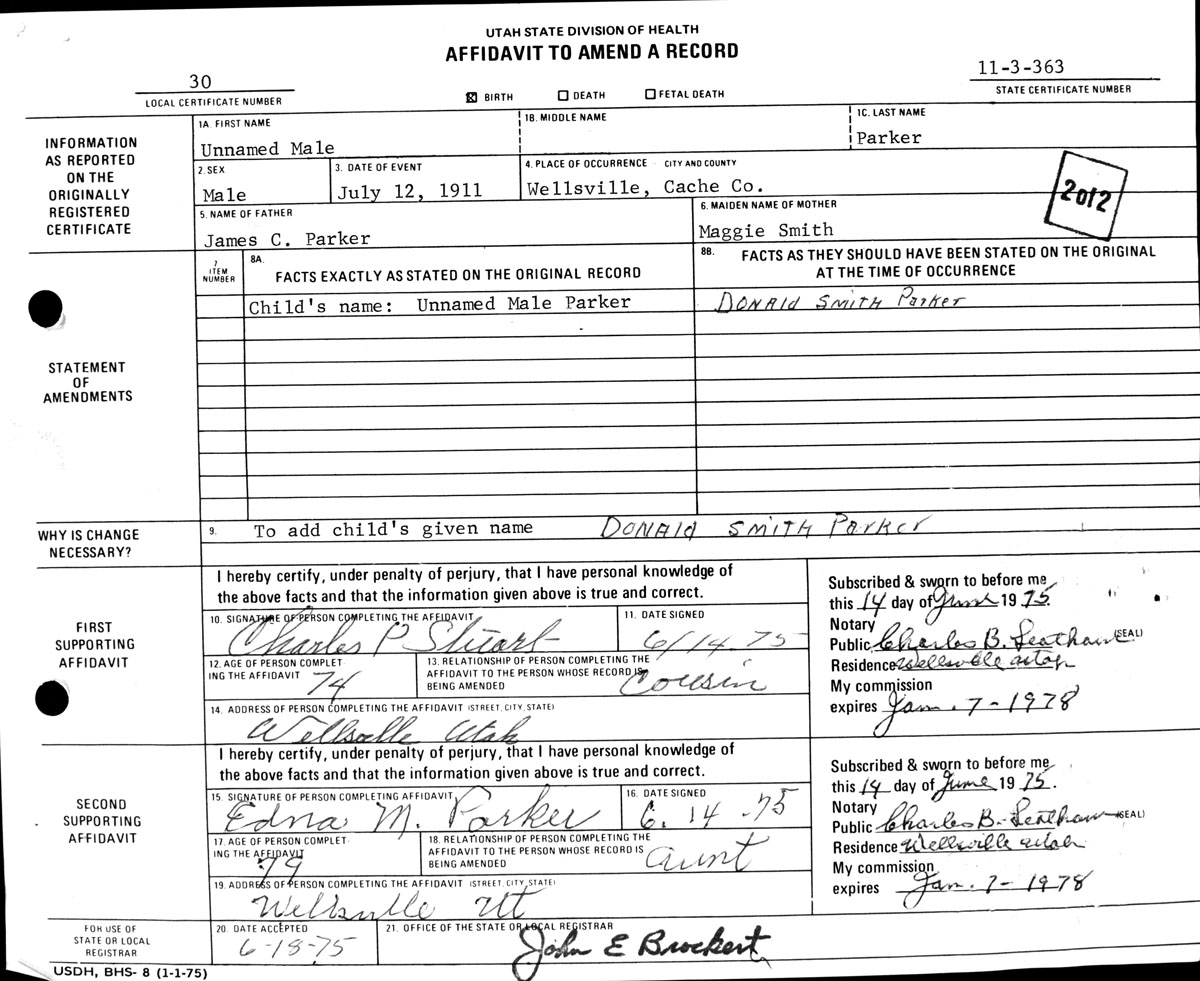 UTAH STATE DIVISION OF HEALTH
AFFIDAVIT TO AMEND A RECORD
30
LOCAL CERTIFICATE NUMBER
☒ BIRTH ☐ DEATH ☐ FETAL DEATH
11-3-363
STATE CERTIFICATE NUMBER
INFORMATION
AS REPORTED
ON THE
ORIGINALLY
REGISTERED
CERTIFICATE
1A. FIRST NAME
Unnamed Male
1B. MIDDLE NAME
1C. LAST NAME
Parker
2. SEX
Male
3. DATE OF EVENT
July 12, 1911
4. PLACE OF OCCURRENCE - CITY AND COUNTY
Wellsville, Cache Co.
2 of 2
5. NAME OF FATHER
James C. Parker
6. MAIDEN NAME OF MOTHER
Maggie Smith
STATEMENT
OF
AMENDMENTS
7
ITEM
NUMBER
8A.
FACTS EXACTLY AS STATED ON THE ORIGINAL RECORD
8B. FACTS AS THEY SHOULD HAVE BEEN STATED ON THE ORIGINAL
AT THE TIME OF OCCURRENCE
Child's name: Unnamed Male Parker
Donald Smith Parker
WHY IS CHANGE
NECESSARY?
9. To add child's given name Donald Smith Parker
FIRST
SUPPORTING
AFFIDAVIT
I hereby certify, under penalty of perjury, that I have personal knowledge of
the above facts and that the information given above is true and correct.
10. SIGNATURE OF PERSON COMPLETING THE AFFIDAVIT
Charles P Stuart
11. DATE SIGNED
6/14.75
12. AGE OF PERSON COMPLET-
ING THE AFFIDAVIT
74
13. RELATIONSHIP OF PERSON COMPLETING THE
AFFIDAVIT TO THE PERSON WHOSE RECORD IS
BEING AMENDED
Cousin
14. ADDRESS OF PERSON COMPLETING THE AFFIDAVIT (STREET, CITY, STATE)
Wellsville Utah
Subscribed & sworn to before me
this 14 day of June 1975.
Notary
Public Charles B. Leatham (SEAL)
Residence Wellsville Utah
My commission
expires Jan. 7-1978
SECOND
SUPPORTING
AFFIDAVIT
I hereby certify, under penalty of perjury, that I have personal knowledge of
the above facts and that the information given above is true and correct.
15. SIGNATURE OF PERSON COMPLETING AFFIDAVIT
Edna M. Parker
16. DATE SIGNED
6. 14 .75
17. AGE OF PERSON COMPLET-
ING THE AFFIDAVIT
79
18. RELATIONSHIP OF PERSON COMPLETING THE
AFFIDAVIT TO THE PERSON WHOSE RECORD IS
BEING AMENDED
aunt
19. ADDRESS OF PERSON COMPLETING THE AFFIDAVIT (STREET, CITY, STATE)
Wellsville Ut
Subscribed & sworn to before me
this 14 day of June 1975.
Notary
Public Charles B. Leatham (SEAL)
Residence Wellsville Utah
My commission
expires Jan. 7-1978
FOR USE OF
STATE OR LOCAL
REGISTRAR
20. DATE ACCEPTED
6-18-75
21. OFFICE OF THE STATE OR LOCAL REGISTRAR
John E Brockert
USDH, BHS- 8 (1-1-75)